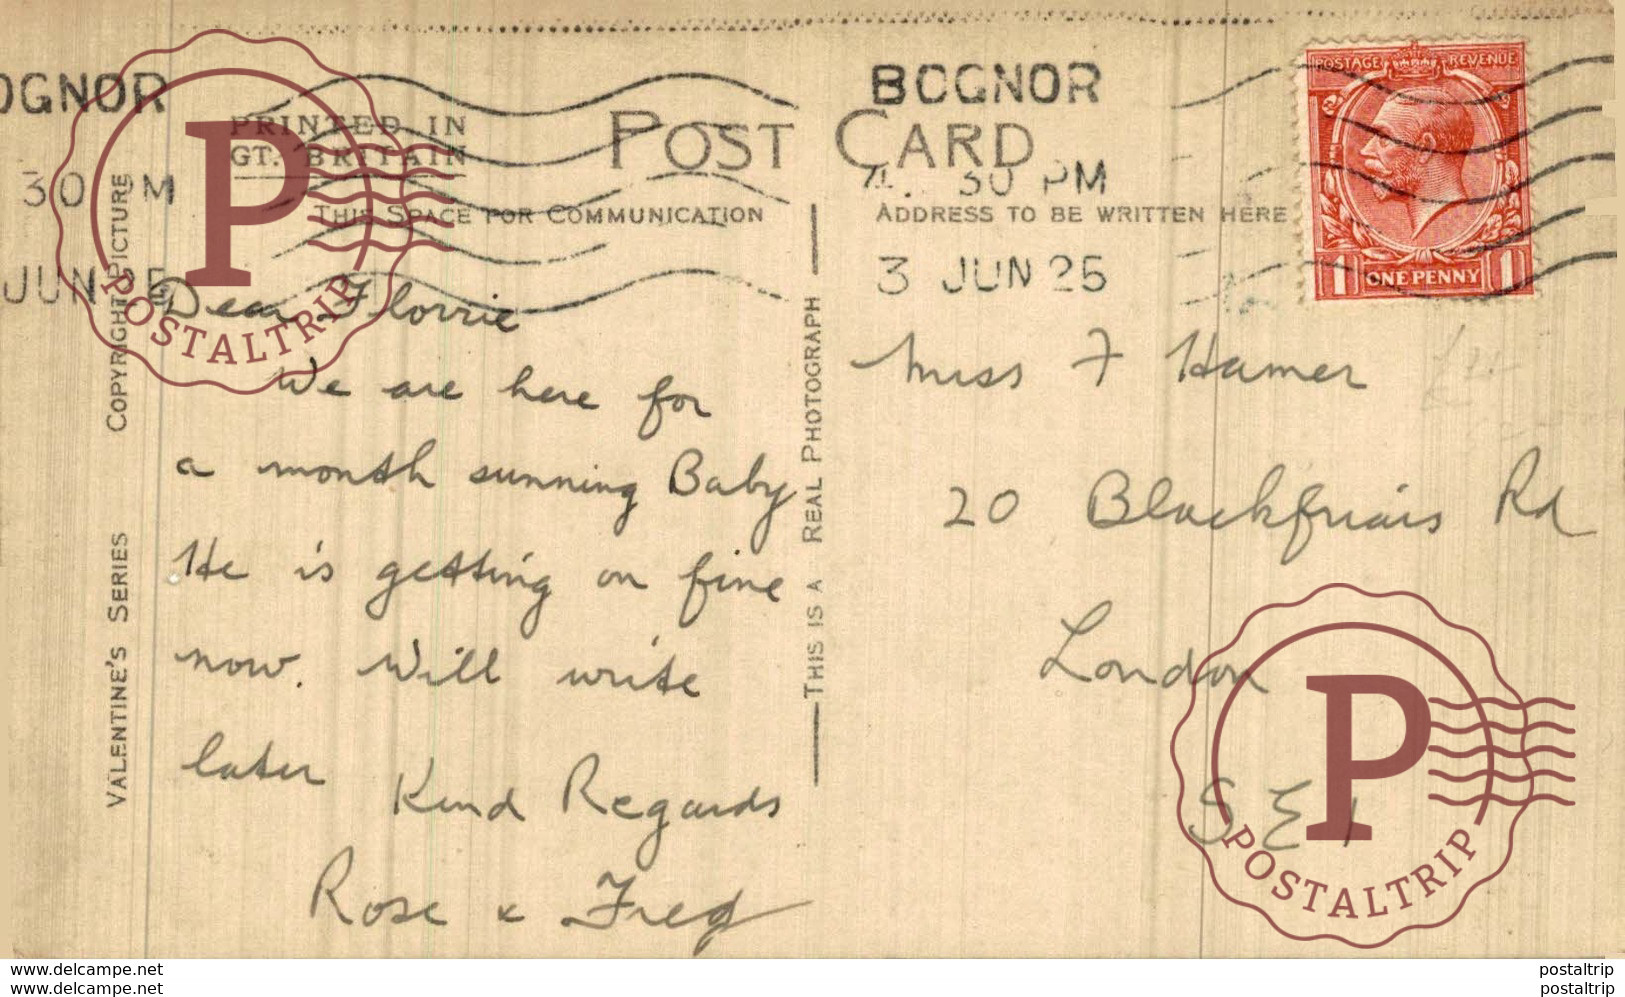 BOGNOR
4. 30 PM
3 JUN 25
OGNOR
30 PM
JUN 25
POSTAGE REVENUE
1 ONE PENNY 1
PRINTED IN
GT. BRITAIN
POST CARD
THIS SPACE FOR COMMUNICATION
ADDRESS TO BE WRITTEN HERE
COPYRIGHT PICTURE
VALENTINE'S SERIES
THIS IS A REAL PHOTOGRAPH
Dear Florrie
We are here for
a month sunning Baby
He is getting on fine
now. Will write
later Kind Regards
Rose & Fred
Miss F Hamer
20 Blackfriars Rd
London
S E 1
P
POSTALTRIP
P
POSTALTRIP
www.delcampe.net
www.delcampe.net
postaltrip
postaltrip